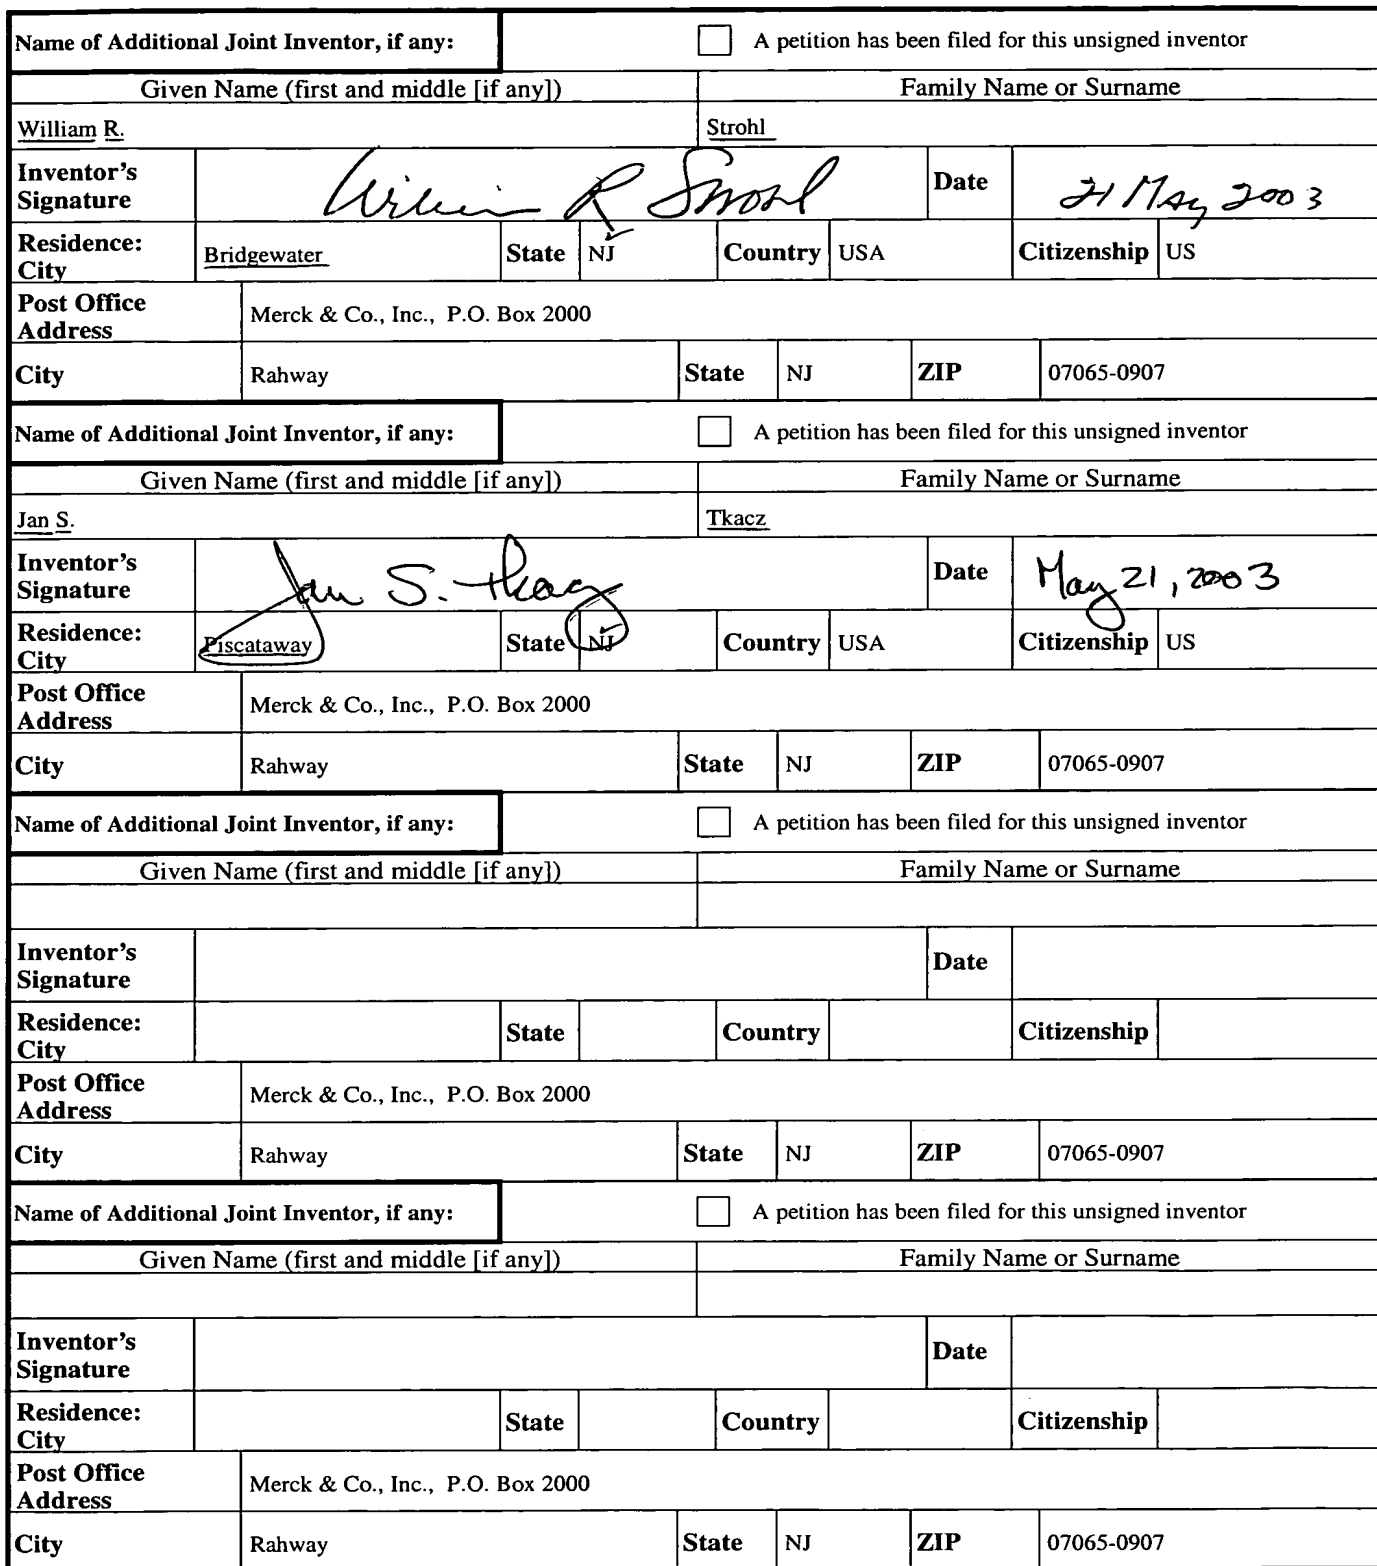 Name of Additional Joint Inventor, if any: A petition has been filed for this unsigned inventor
Given Name (first and middle [if any]) Family Name or Surname
William R. Strohl
Inventor's Signature William R Strohl Date 21 May 2003
Residence: City Bridgewater State NJ Country USA Citizenship US
Post Office Address Merck & Co., Inc., P.O. Box 2000
City Rahway State NJ ZIP 07065-0907
Name of Additional Joint Inventor, if any: A petition has been filed for this unsigned inventor
Given Name (first and middle [if any]) Family Name or Surname
Jan S. Tkacz
Inventor's Signature Jan S. Tkacz Date May 21, 2003
Residence: City Piscataway State NJ Country USA Citizenship US
Post Office Address Merck & Co., Inc., P.O. Box 2000
City Rahway State NJ ZIP 07065-0907
Name of Additional Joint Inventor, if any: A petition has been filed for this unsigned inventor
Given Name (first and middle [if any]) Family Name or Surname
Inventor's Signature Date
Residence: City State Country Citizenship
Post Office Address Merck & Co., Inc., P.O. Box 2000
City Rahway State NJ ZIP 07065-0907
Name of Additional Joint Inventor, if any: A petition has been filed for this unsigned inventor
Given Name (first and middle [if any]) Family Name or Surname
Inventor's Signature Date
Residence: City State Country Citizenship
Post Office Address Merck & Co., Inc., P.O. Box 2000
City Rahway State NJ ZIP 07065-0907